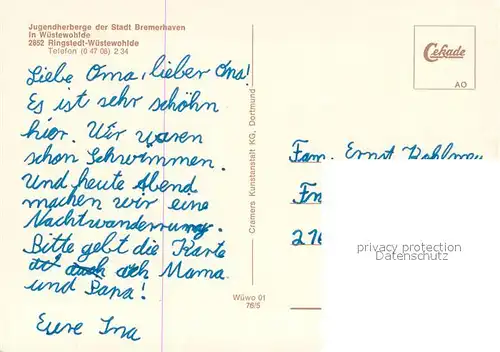 Jugendherberge der Stadt Bremerhaven
in Wüstewohlde
2852 Ringstedt-Wüstewohlde
Telefon (0 47 08) 2 34
Liebe Oma, lieber Opa!
Es ist sehr schöhn
hier. Wir waren
schon Schwimmen.
Und heute Abend
machen wir eine
Nachtwanderrung.
Bitte gebt die Karte
auch Mama
und Papa!
Eure Ina
Cramers Kunstanstalt KG, Dortmund
Wüwo 01
76/5
Cekade
AO
Fam. Ernst
privacy protection
Datenschutz